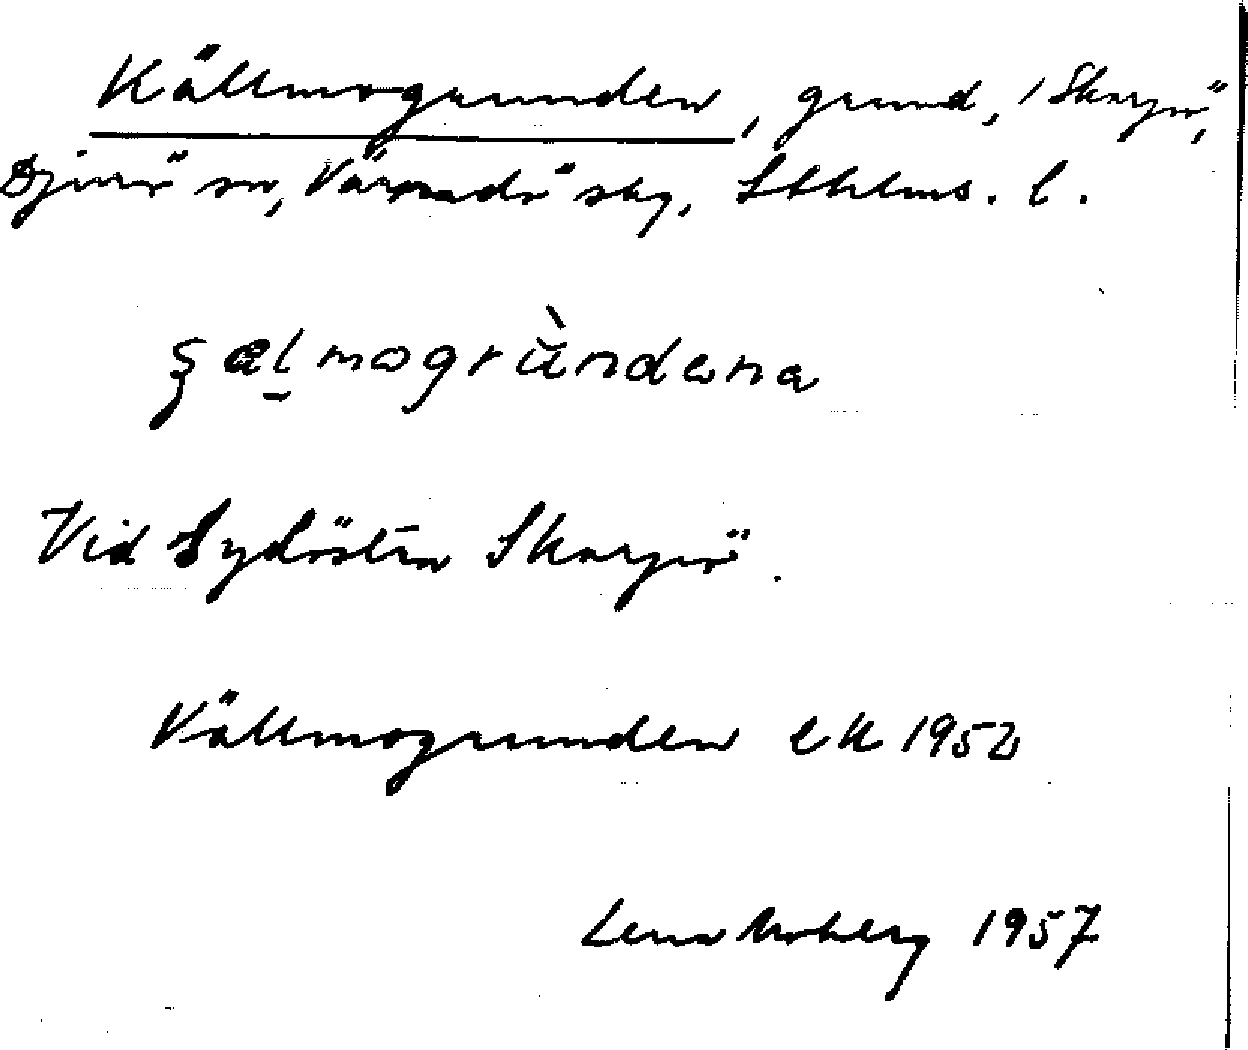 Källmogrunden, grund, i Skarpö,
Djurö sn, Värmdö skg, Sthlms. l.
ʂælmogrùndena
Vid Sydöstra Skarpö.
Vällmogrunden ek 1952
Lena Moberg 1957